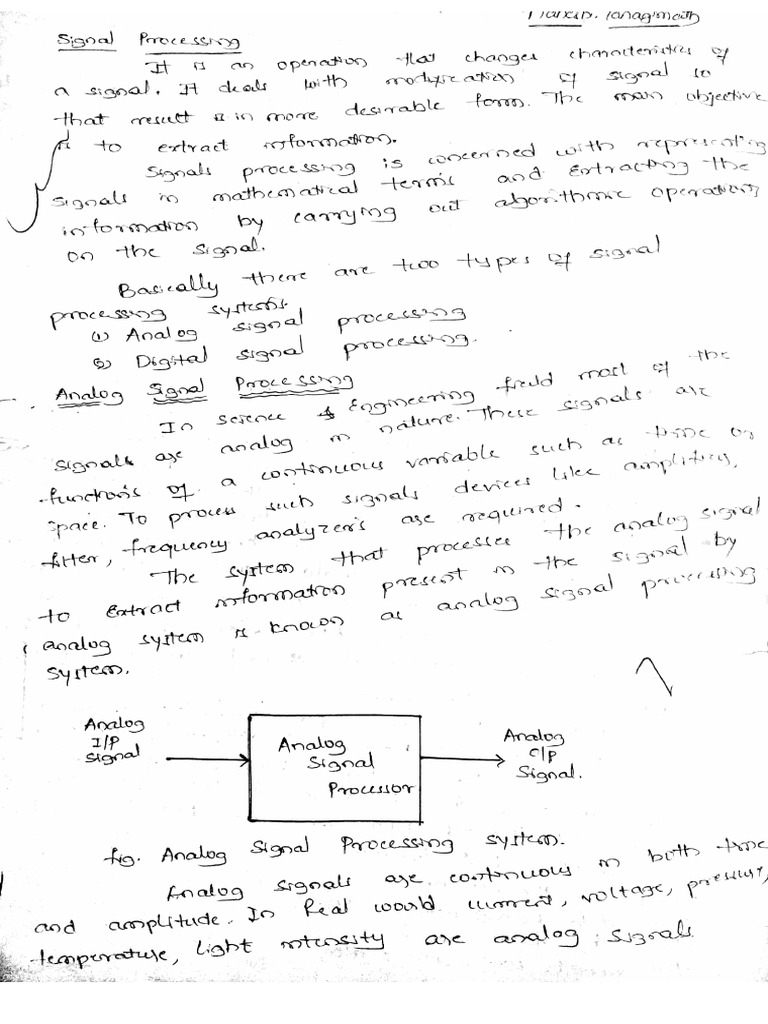 Signal Processing
It is an operation that changes characteristics of
a signal. It deals with modification of signal so
that result is in more desirable form. The main objective
is to extract information.
Signals processing is concerned with representing
signals in mathematical terms and extracting the
information by carrying out algorithmic operations
on the signal.
Basically there are two types of signal
processing systems.
(1) Analog signal processing
(2) Digital signal processing.
Analog Signal Processing
In Science & Engineering field most of the
signals are analog in nature. These signals are
functions of a continuous variable such as time or
space. To process such signals devices like amplifiers,
filter, frequency analyzers are required.
The system that processes the analog signal
to extract information present in the signal by
analog system is known as analog signal processing
system.
Analog
I/P
Signal
Analog
Signal
Processor
Analog
O/P
Signal.
fig. Analog Signal Processing system.
Analog signals are continuous in both time
and amplitude. In Real would current, voltage, pressure,
temperature, light intensity are analog signals